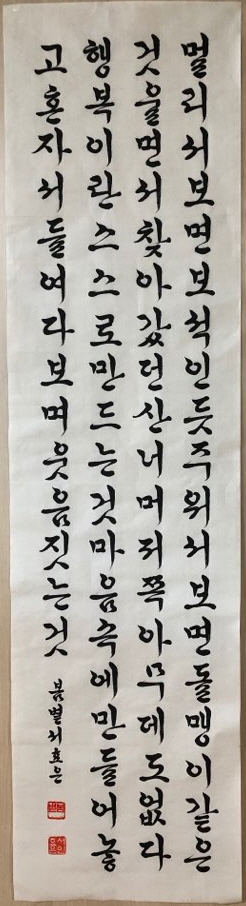 멀리서보면보석인듯주워서보면돌맹이같은
것울면서찾아갔던산너머저쪽아무데도없다
행복이란스스로만드는것마음속에만들어놓
고혼자서들여다보며웃음짓는것
봄별서효은